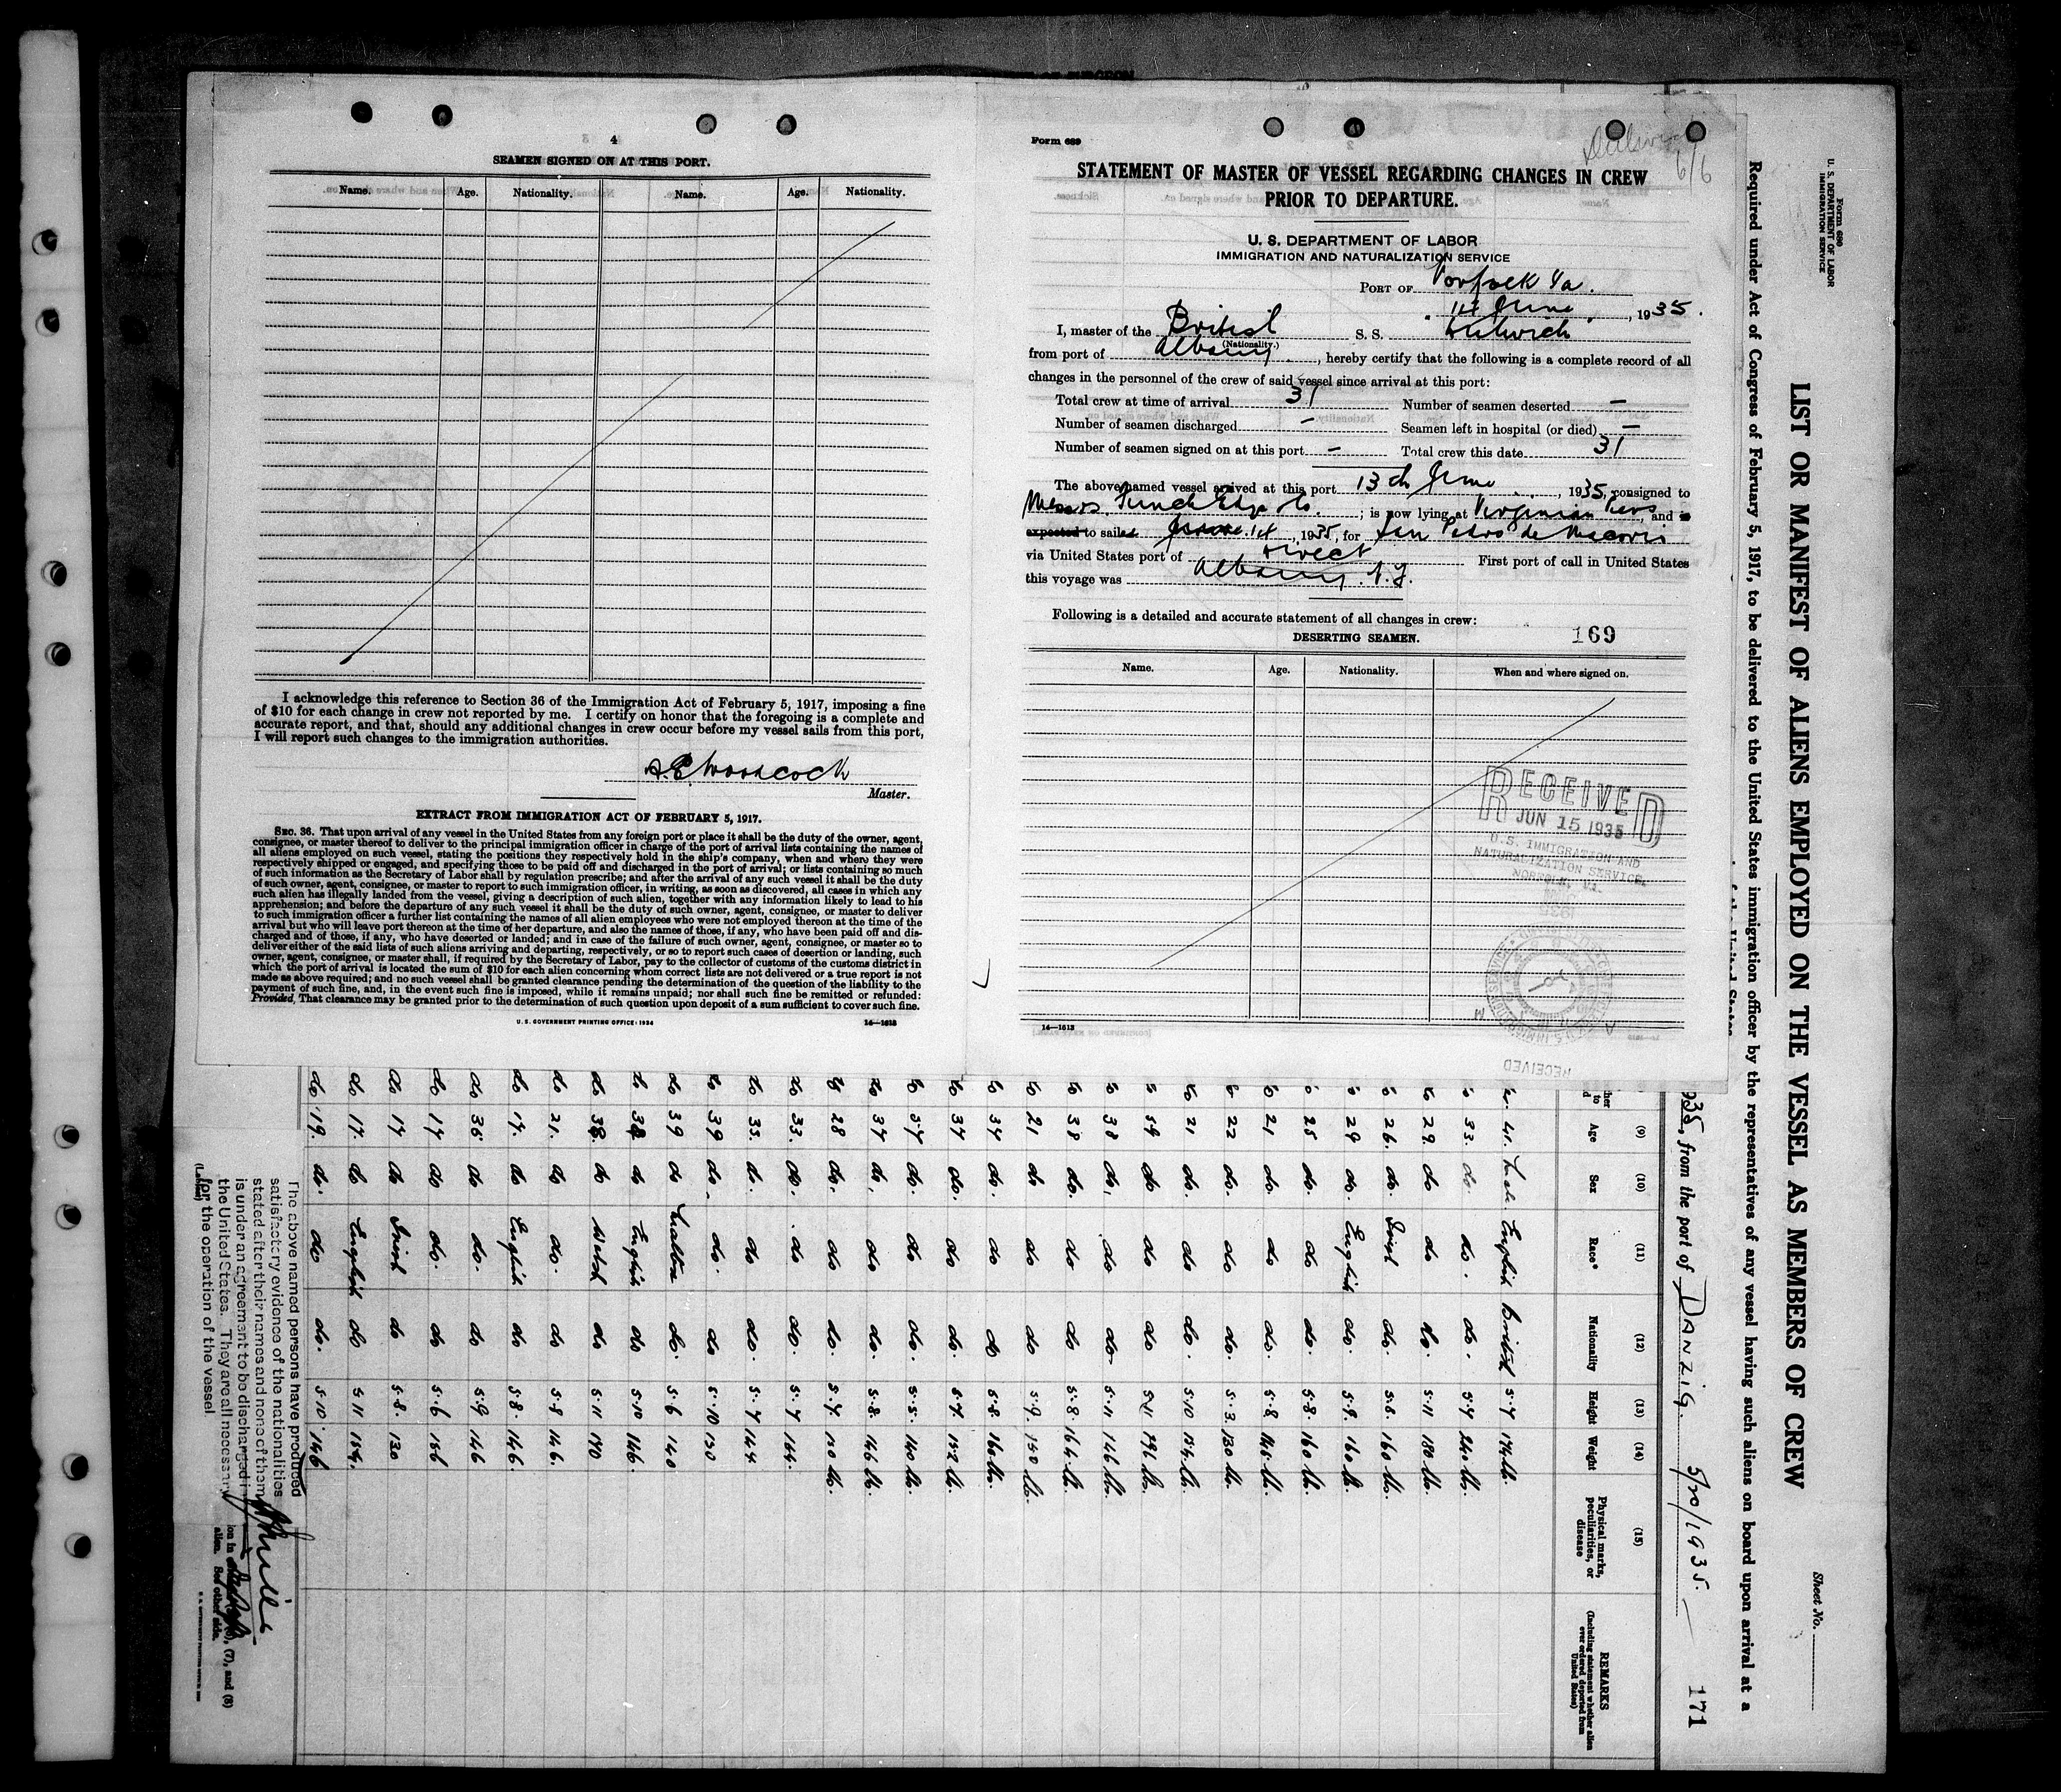 4
SEAMEN SIGNED ON AT THIS PORT.
Name. Age. Nationality. Name. Age. Nationality.
I acknowledge this reference to Section 36 of the Immigration Act of February 5, 1917, imposing a fine
of $10 for each change in crew not reported by me. I certify on honor that the foregoing is a complete and
accurate report, and that, should any additional changes in crew occur before my vessel sails from this port,
I will report such changes to the immigration authorities.
Woodcock
Master.
EXTRACT FROM IMMIGRATION ACT OF FEBRUARY 5, 1917.
SEC. 36. That upon arrival of any vessel in the United States from any foreign port or place it shall be the duty of the owner, agent,
consignee, or master thereof to deliver to the principal immigration officer in charge of the port of arrival lists containing the names of
all aliens employed on such vessel, stating the positions they respectively hold in the ship's company, when and where they were
respectively shipped or engaged, and specifying those to be paid off and discharged in the port of arrival; or lists containing so much
of such information as the Secretary of Labor shall by regulation prescribe; and after the arrival of any such vessel it shall be the duty
of such owner, agent, consignee, or master to report to such immigration officer, in writing, as soon as discovered, all cases in which any
such alien has illegally landed from the vessel, giving a description of such alien, together with any information likely to lead to his
apprehension; and before the departure of any such vessel it shall be the duty of such owner, agent, consignee, or master to deliver
to such immigration officer a further list containing the names of all alien employees who were not employed thereon at the time of the
arrival but who will leave port thereon at the time of her departure, and also the names of those, if any, who have been paid off and dis-
charged and of those, if any, who have deserted or landed; and in case of the failure of such owner, agent, consignee, or master so to
deliver either of the said lists of such aliens arriving and departing, respectively, or so to report such cases of desertion or landing, such
owner, agent, consignee, or master shall, if required by the Secretary of Labor, pay to the collector of customs of the customs district in
which the port of arrival is located the sum of $10 for each alien concerning whom correct lists are not delivered or a true report is not
made as above required; and no such vessel shall be granted clearance pending the determination of the question of the liability to the
payment of such fine, and, in the event such fine is imposed, while it remains unpaid; nor shall such fine be remitted or refunded:
Provided, That clearance may be granted prior to the determination of such question upon deposit of a sum sufficient to cover such fine.
U. S. GOVERNMENT PRINTING OFFICE: 1934 14—1613
Form 689
6/6
STATEMENT OF MASTER OF VESSEL REGARDING CHANGES IN CREW
PRIOR TO DEPARTURE.
U. S. DEPARTMENT OF LABOR
IMMIGRATION AND NATURALIZATION SERVICE
PORT OF Norfolk Va.
14 June, 1935.
I, master of the British S. S. Dulwich
(Nationality.)
from port of Albany, hereby certify that the following is a complete record of all
changes in the personnel of the crew of said vessel since arrival at this port:
Total crew at time of arrival 31 Number of seamen deserted —
Number of seamen discharged — Seamen left in hospital (or died) —
Number of seamen signed on at this port — Total crew this date 31
The above-named vessel arrived at this port 13th June, 1935, consigned to
Messrs. Funch Edye Co.; is now lying at Virginian Piers, and is
expected to sailed June 14, 1935, for San Pedro de Macoris
via United States port of direct First port of call in United States
this voyage was Albany. N.Y.
Following is a detailed and accurate statement of all changes in crew:
DESERTING SEAMEN. 169
Name. Age. Nationality. When and where signed on.
RECEIVED
JUN 15 1935
U.S. IMMIGRATION AND
NATURALIZATION SERVICE,
NORFOLK, VA.
14—1613
RECEIVED
Form 680
U. S. DEPARTMENT OF LABOR
IMMIGRATION SERVICE
Sheet No.
LIST OR MANIFEST OF ALIENS EMPLOYED ON THE VESSEL AS MEMBERS OF CREW
Required under Act of Congress of February 5, 1917, to be delivered to the United States immigration officer by the representatives of any vessel having such aliens on board upon arrival at a
1935, from the port of DANZIG. 1935. 171
(9) (10) (11) (12) (13) (14) (15)
Age Sex Race* Nationality Height Weight Physical marks, peculiarities, or disease
REMARKS
(Including statement whether alien ever ordered deported from United States)
41. English British 5.7
33. do. do. 5.7 240 lbs.
29. do do do. 5.11 180 lbs.
26. do. Irish do. 160 lbs.
29 do. English do. 5.9. 160 lb.
25 do. do do. 5.8. 160 lb.
21 do. do do. 5.8
22 do. do do. 5.3. 130 lbs.
21 do. do do. 5.10
do do do 5.11
38 do. do do. 5.11 146 lbs.
38 do. do do 5.8. 164 lb.
21 do do do 5.9. 150 lbs.
34 do. do do 5.8. 160 lbs.
37 do. do do. 5.7. 152 lb.
do. do do. 5.5. 140 lb.
37 do. do do. 5.8. 146 lb.
28 do. do do. 5.7. 150 lb.
33. do. do do. 5.7
35. do. do do. 5.7 144
39 do. do. do 5.10 150
39 do Maltese do. 5.6 140
38 do English do 5.10 146.
38. do Welsh do 5.11 170
21. do do. do 5.8 146.
17. do English do 5.8. 146.
36 do do. do 5.9 146
17 do do. do 5.6 156
17 do Irish do 5.8. 130
17. do English do 5.11 154.
19. do. do do. 5.10 146
The above named persons have produced
satisfactory evidence of the nationalities
stated after their names and none of them
is under an agreement to be discharged in
the United States. They are all necessary
for the operation of the vessel.
(7), and (8)
alien. See other side.